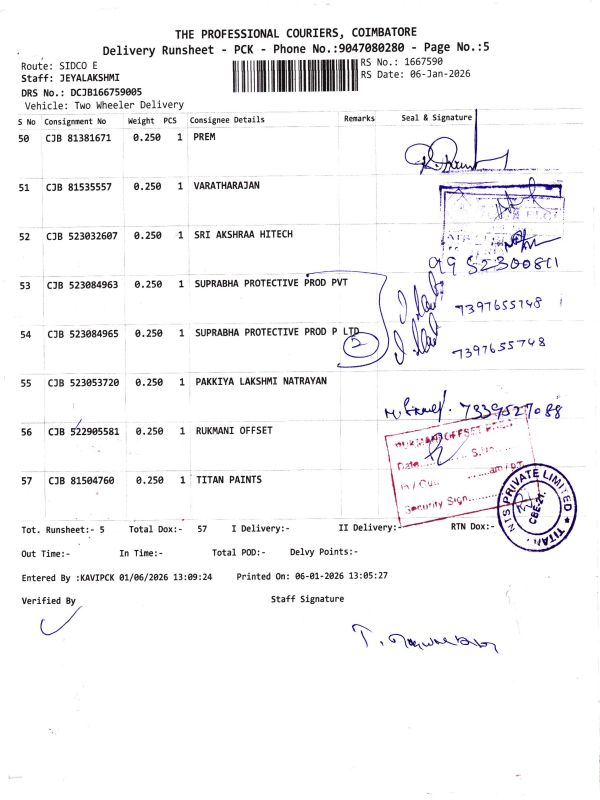 THE PROFESSIONAL COURIERS, COIMBATORE
Delivery Runsheet - PCK - Phone No.:9047080280 - Page No.:5
Route: SIDCO E
RS No.: 1667590
Staff: JEYALAKSHMI
RS Date: 06-Jan-2026
DRS No.: DCJB166759005
Vehicle: Two Wheeler Delivery
S No Consignment No Weight PCS Consignee Details Remarks Seal & Signature
50 CJB 81381671 0.250 1 PREM
51 CJB 81535557 0.250 1 VARATHARAJAN
52 CJB 523032607 0.250 1 SRI AKSHRAA HITECH
9952300811
53 CJB 523084963 0.250 1 SUPRABHA PROTECTIVE PROD PVT
7397655748
54 CJB 523084965 0.250 1 SUPRABHA PROTECTIVE PROD P LTD
2
7397655748
55 CJB 523053720 0.250 1 PAKKIYA LAKSHMI NATRAYAN
7339527088
56 CJB 522905581 0.250 1 RUKMANI OFFSET
RUKMANI OFFSET
Date.......... S.No.
In / Out.......... am / p.m.
Security Sign..........
57 CJB 81504760 0.250 1 TITAN PAINTS
NTS PRIVATE LIMITED ★ TITAN
CBE-21.
Tot. Runsheet:- 5 Total Dox:- 57 I Delivery:- II Delivery:- RTN Dox:-
Out Time:- In Time:- Total POD:- Delvy Points:-
Entered By :KAVIPCK 01/06/2026 13:09:24 Printed On: 06-01-2026 13:05:27
Verified By Staff Signature